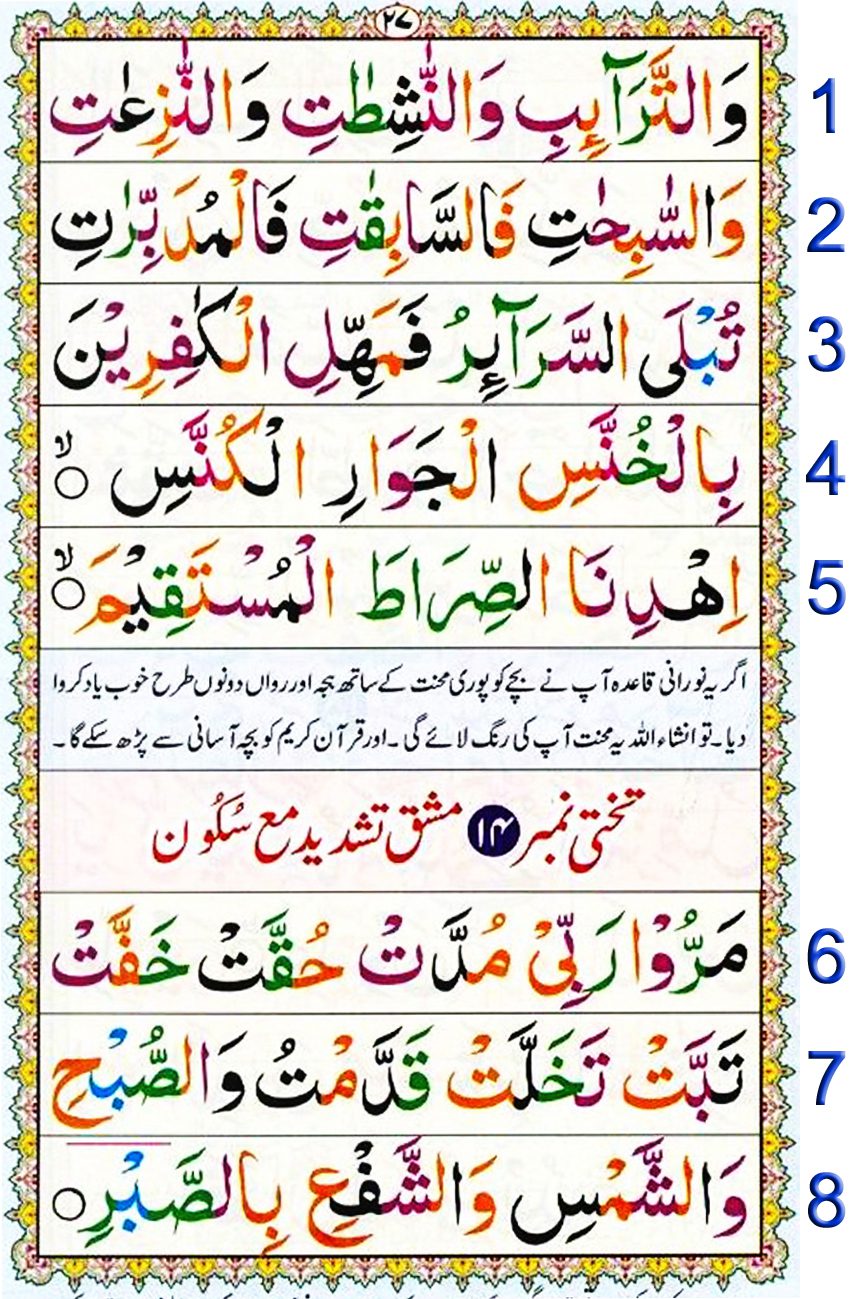 ٢٧
وَالتَّرَآئِبِ وَالنّٰشِطٰتِ وَالنّٰزِعٰتِ 1
وَالسّٰبِحٰتِ فَالسَّابِقٰتِ فَالْمُدَبِّرٰتِ 2
تُبْلَى السَّرَآئِرُ فَمَهِّلِ الْكٰفِرِيْنَ 3
بِالْخُنَّسِ الْجَوَارِ الْكُنَّسِ ○ لا 4
اِهْدِنَا الصِّرَاطَ الْمُسْتَقِيْمَ ○ لا 5
اگر یہ نورانی قاعدہ آپ نے بچے کو پوری محنت کے ساتھ ہجہ اور رواں دونوں طرح خوب یاد کروا
دیا۔ تو انشاء اللہ یہ محنت آپ کی رنگ لائے گی۔ اور قرآن کریم کو بچہ آسانی سے پڑھ سکے گا۔
تختی نمبر ۱۴ مشق تشدید مع سُکُون
مَرُّوْا رَبِّىْ مُدَّتْ حُقَّتْ خَفَّتْ 6
تَبَّتْ تَخَلَّتْ قَدَّمْتُ وَالصُّبْحِ 7
وَالشَّمْسِ وَالشَّفْعِ بِالصَّبْرِ ○ 8